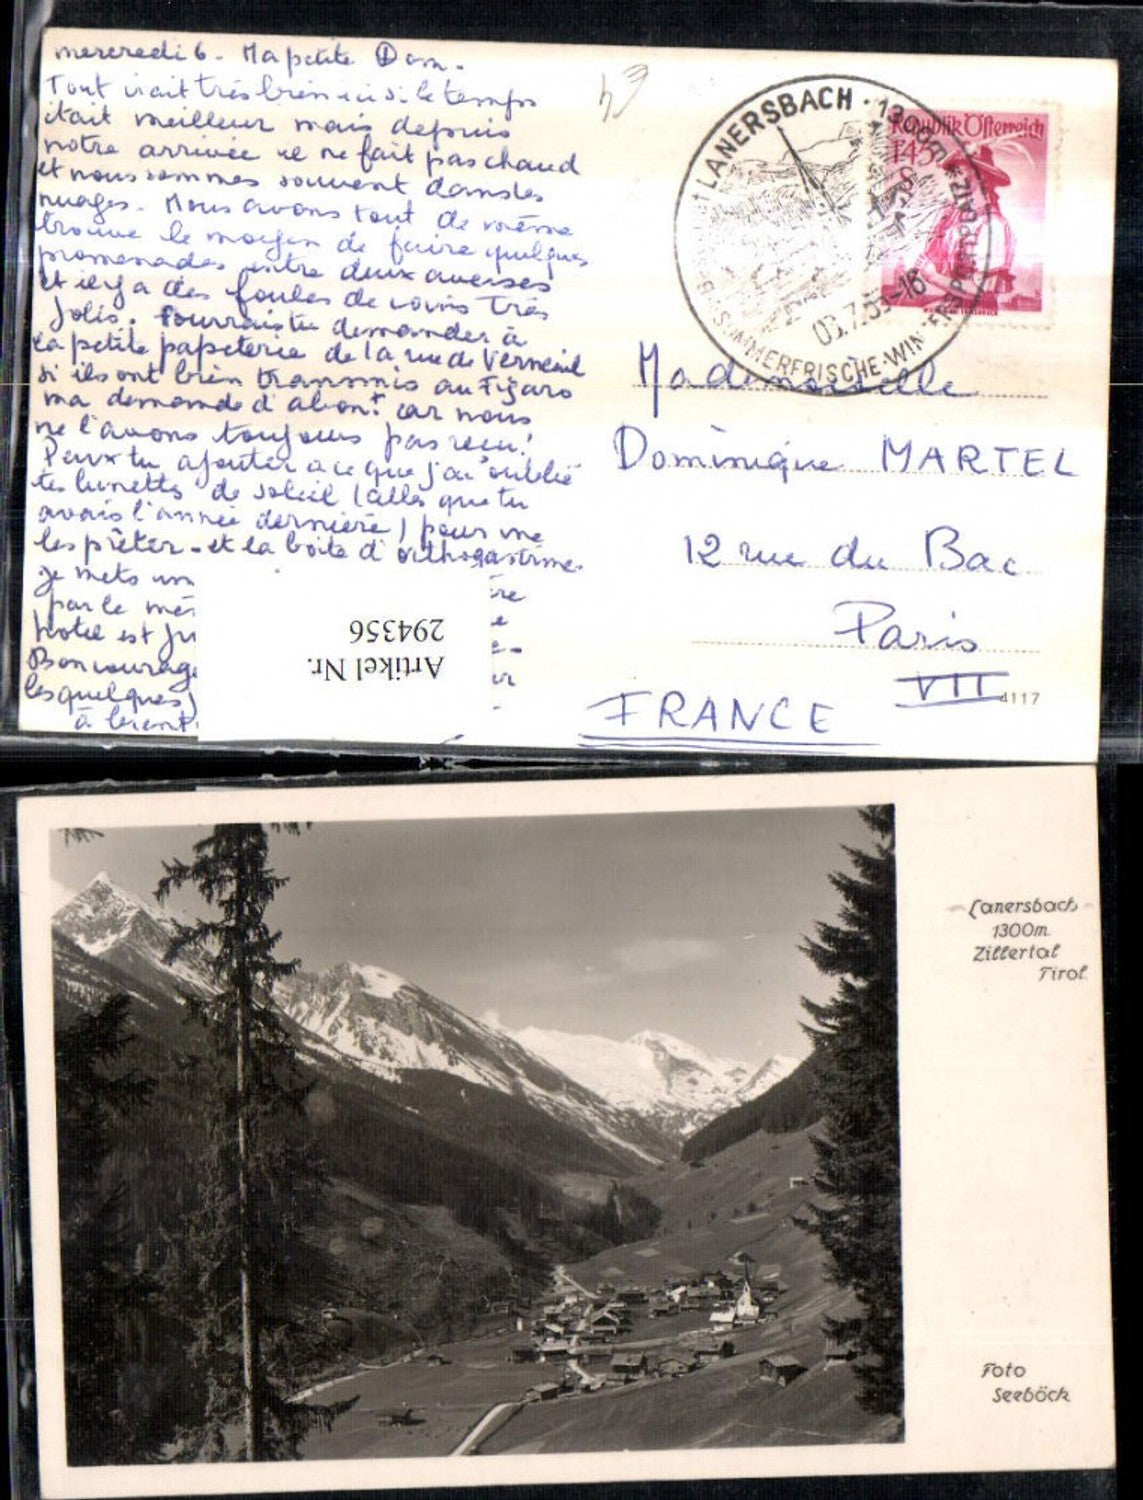 mercredi 6. Ma petite Dom.
Tout irait très bien ici si le temps
était meilleur mais depuis
notre arrivée il ne fait pas chaud
et nous sommes souvent dans les
nuages. Nous avons tout de même
trouvé le moyen de faire quelques
promenades entre deux averses
et il y a des foules de coins très
jolis. Pourrais tu demander à
la petite papeterie de la rue de Verneuil
si ils ont bien transmis au Figaro
ma demande d'abont car nous
ne l'avons toujours pas reçu!
Peux tu ajouter à ce que j'ai oublié
tes lunettes de soleil (celles que tu
avais l'année dernière) pour me
les prêter - et la boite d'orthogastrine
je mets un
par le
hotel est
Bon courage
les quelques
à bient
Artikel Nr.
294356
LANERSBACH · 1300m · ZILLERTAL
SOMMERFRISCHE-WINTERSPORT
06.7.
-16
Republik Österreich
1.45
S
Mademoiselle
Dominique MARTEL
12 rue du Bac
Paris
VII
FRANCE
4117
Lanersbach
1300m.
Zillertal
Tirol.
Foto
Seeböck